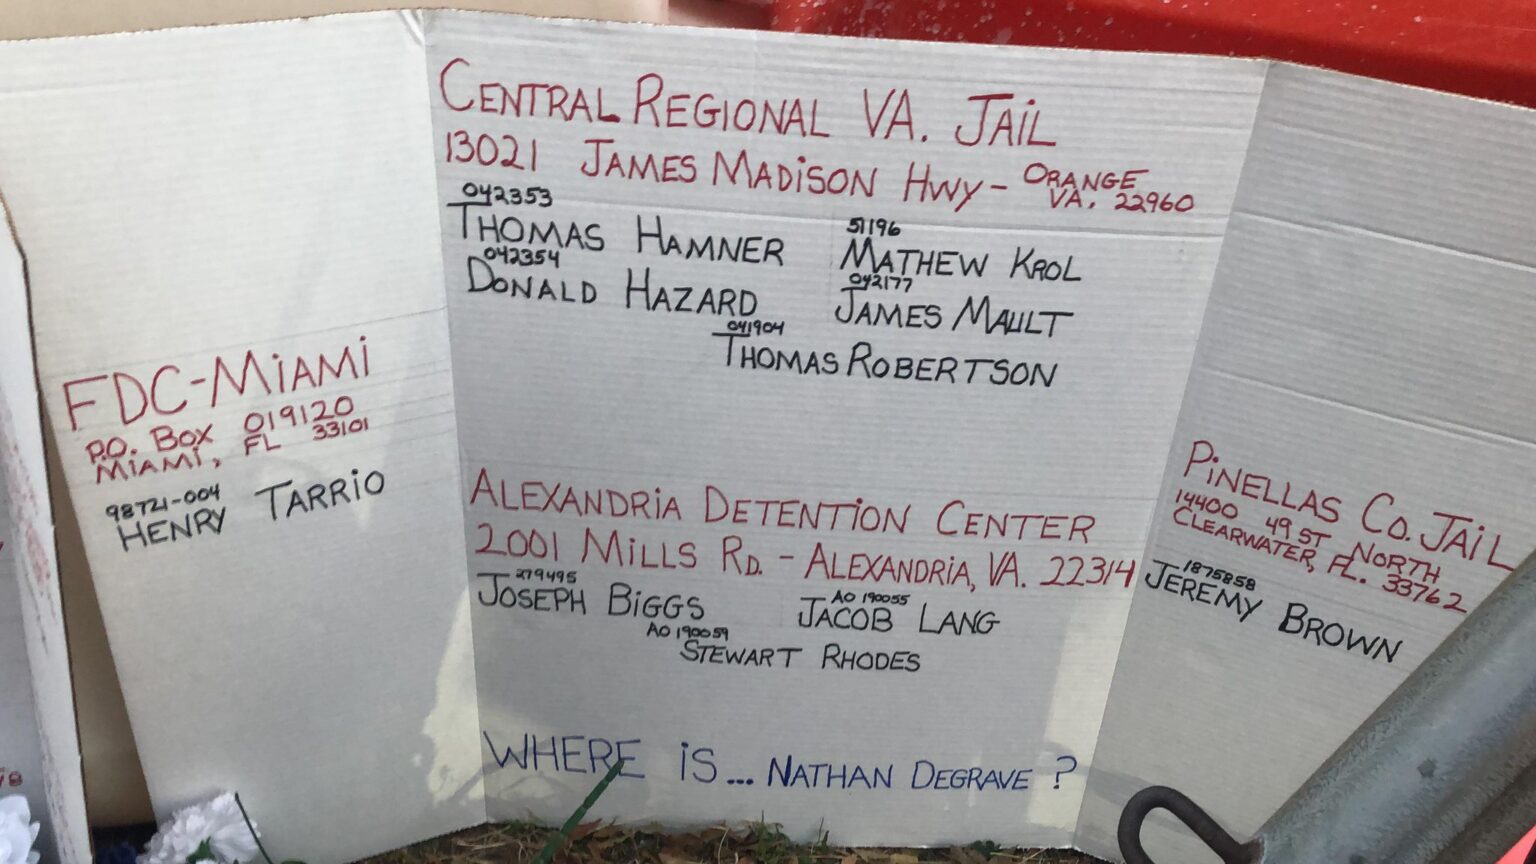 FDC-MIAMI
P.O. BOX 019120
MIAMI, FL 33101
98721-004
HENRY TARRIO
CENTRAL REGIONAL VA. JAIL
13021 JAMES MADISON HWY - ORANGE VA. 22960
042353
THOMAS HAMNER
042354
DONALD HAZARD
51196
MATHEW KROL
042177
JAMES MAULT
041904
THOMAS ROBERTSON
ALEXANDRIA DETENTION CENTER
2001 MILLS RD. - ALEXANDRIA, VA. 22314
279495
JOSEPH BIGGS
AO 190055
JACOB LANG
AO 190059
STEWART RHODES
WHERE IS... NATHAN DEGRAVE ?
PINELLAS CO. JAIL
14400 49 ST NORTH
CLEARWATER, FL. 33762
1875858
JEREMY BROWN